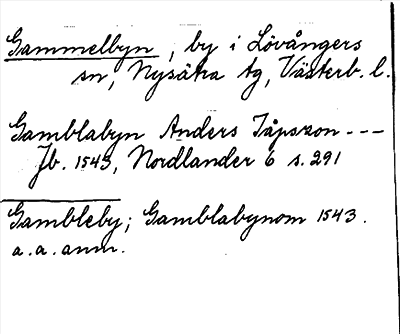 Gammelbyn, by i Lövångers
sn, Nysätra tg, Västerb. l.
Gamblabyn Anders Jåpszon ---
Jb. 1543, Nordlander 6 s. 291
Gambleby; Gamblabynom 1543.
a. a. anm.